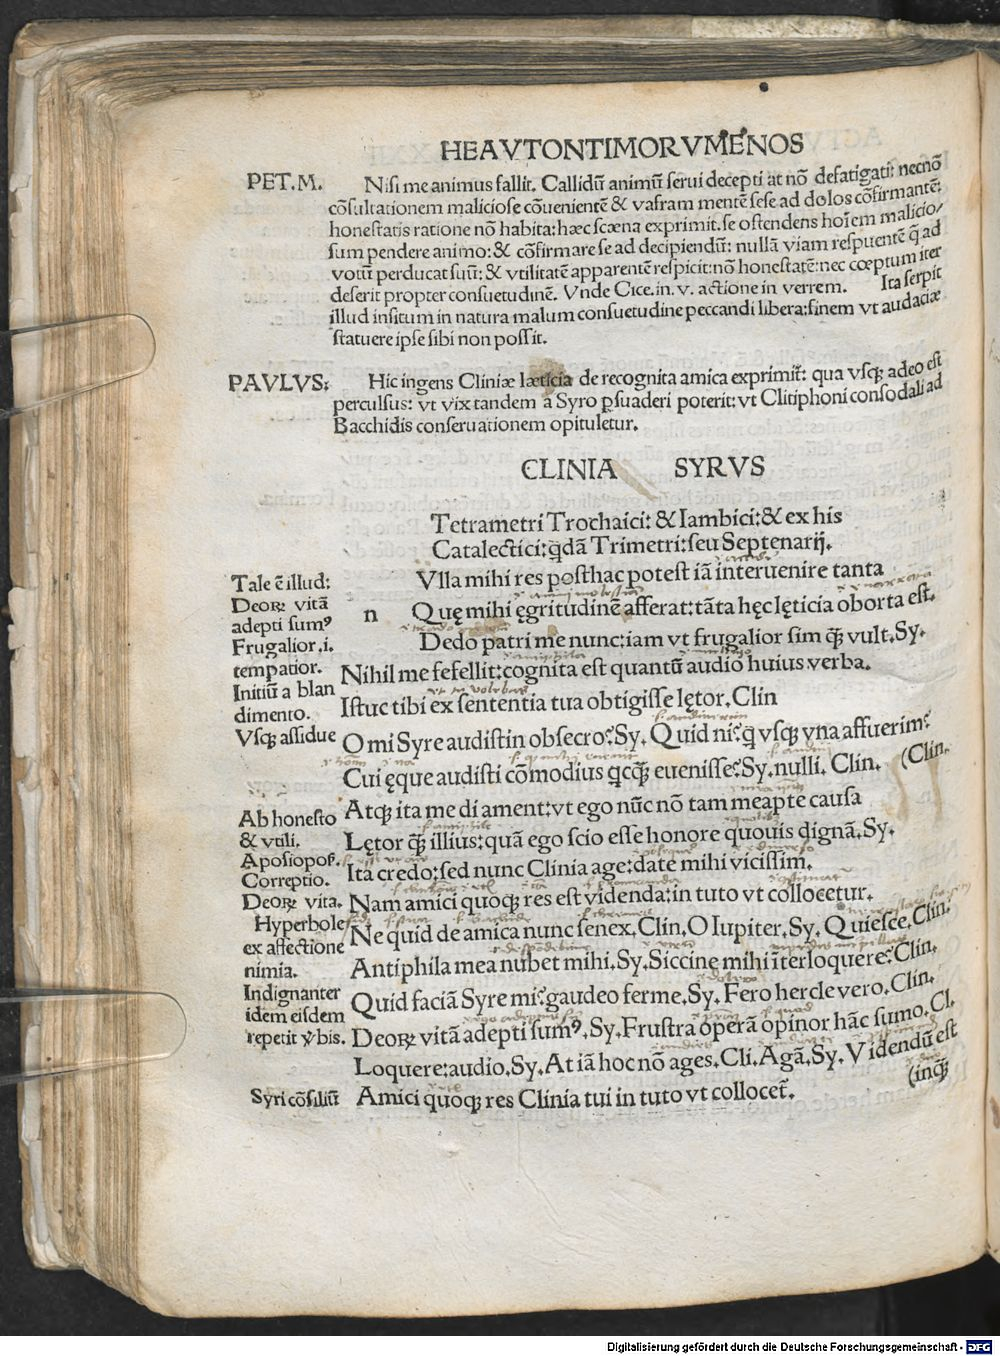 HEAVTONTIMORVMENOS
PET.M. Nisi me animus fallit. Callidū animū serui decepti at nō defatigati: necnō
cōsultationem maliciose cōuenientē & vafram mentē sese ad dolos cōfirmantē:
honestatis ratione nō habita: hæc scæna exprimit. se ostendens hoīem malicio/
sum pendere animo: & cōfirmare se ad decipiendū: nullā viam respuentē q̄ ad
votū perducat suū: & vtilitatē apparentē respicit: nō honestatē: nec cœptum iter
deserit propter consuetudinē. Vnde Cice. in. v. actione in verrem. Ita serpit
illud insitum in natura malum consuetudine peccandi libera: finem vt audaciæ
statuere ipse sibi non possit.
PAVLVS: Hic ingens Cliniæ læticia de recognita amica exprimit: qua vsq; adeo est
perculsus: vt vix tandem a Syro ꝑsuaderi poterit: vt Clitiphoni consodali ad
Bacchidis conseruationem opituletur.
CLINIA SYRVS
Tetrametri Trochaici: & Iambici: & ex his
Catalectici: q̄dā Trimetri: seu Septenarij.
Tale ē illud:
Deoꝝ vitā
adepti sumꝰ
Frugalior .i.
tempatior.
Initiū a blan
dimento.
Vsq; assidue
Ab honesto
& vtili.
Aposiopoẞ.
Correptio.
Deoꝝ vita.
Hyperbole
ex affectione
nimia.
Indignanter
idem eisdem
repetit v̄bis.
Syri cōsiliū
Vlla mihi res posthac potest iā interuenire tanta
n Quę mihi ęgritudinē afferat: tāta hęc lęticia oborta est.
Dedo patri me nunc: iam vt frugalior sim q̄ꝫ vult. Sy.
Nihil me fefellit: cognita est quantū audio huius verba.
Istuc tibi ex sententia tua obtigisse lętor. Clin
O mi Syre audistin obsecro? Sy. Quid ni? q̄ vsq; vna affuerim?
Cui ęque audisti cōmodius q̄cq̄ꝫ euenisse? Sy. nulli. Clin. (Clin.
Atq; ita me di ament: vt ego nūc nō tam meapte causa
Lętor q̄ꝫ illius: quā ego scio esse honore quouis dignā. Sy.
Ita credo: sed nunc Clinia age: date mihi vicissim.
Nam amici quoq; res est videnda: in tuto vt collocetur.
Ne quid de amica nunc senex. Clin. O Iupiter. Sy. Quiesce. Clin.
Antiphila mea nubet mihi. Sy. Siccine mihi īterloquere? Clin.
Quid faciā Syre mi? gaudeo ferme. Sy. Fero hercle vero. Clin.
Deoꝝ vitā adepti sumꝰ. Sy. Frustra operā opinor hāc sumo. Cl.
Loquere: audio. Sy. At iā hoc nō ages. Cli. Agā. Sy. Videndū est
(inq̄ꝫ
Amici quoq; res Clinia tui in tuto vt collocet̄.
Digitalisierung gefördert durch die Deutsche Forschungsgemeinschaft - DFG